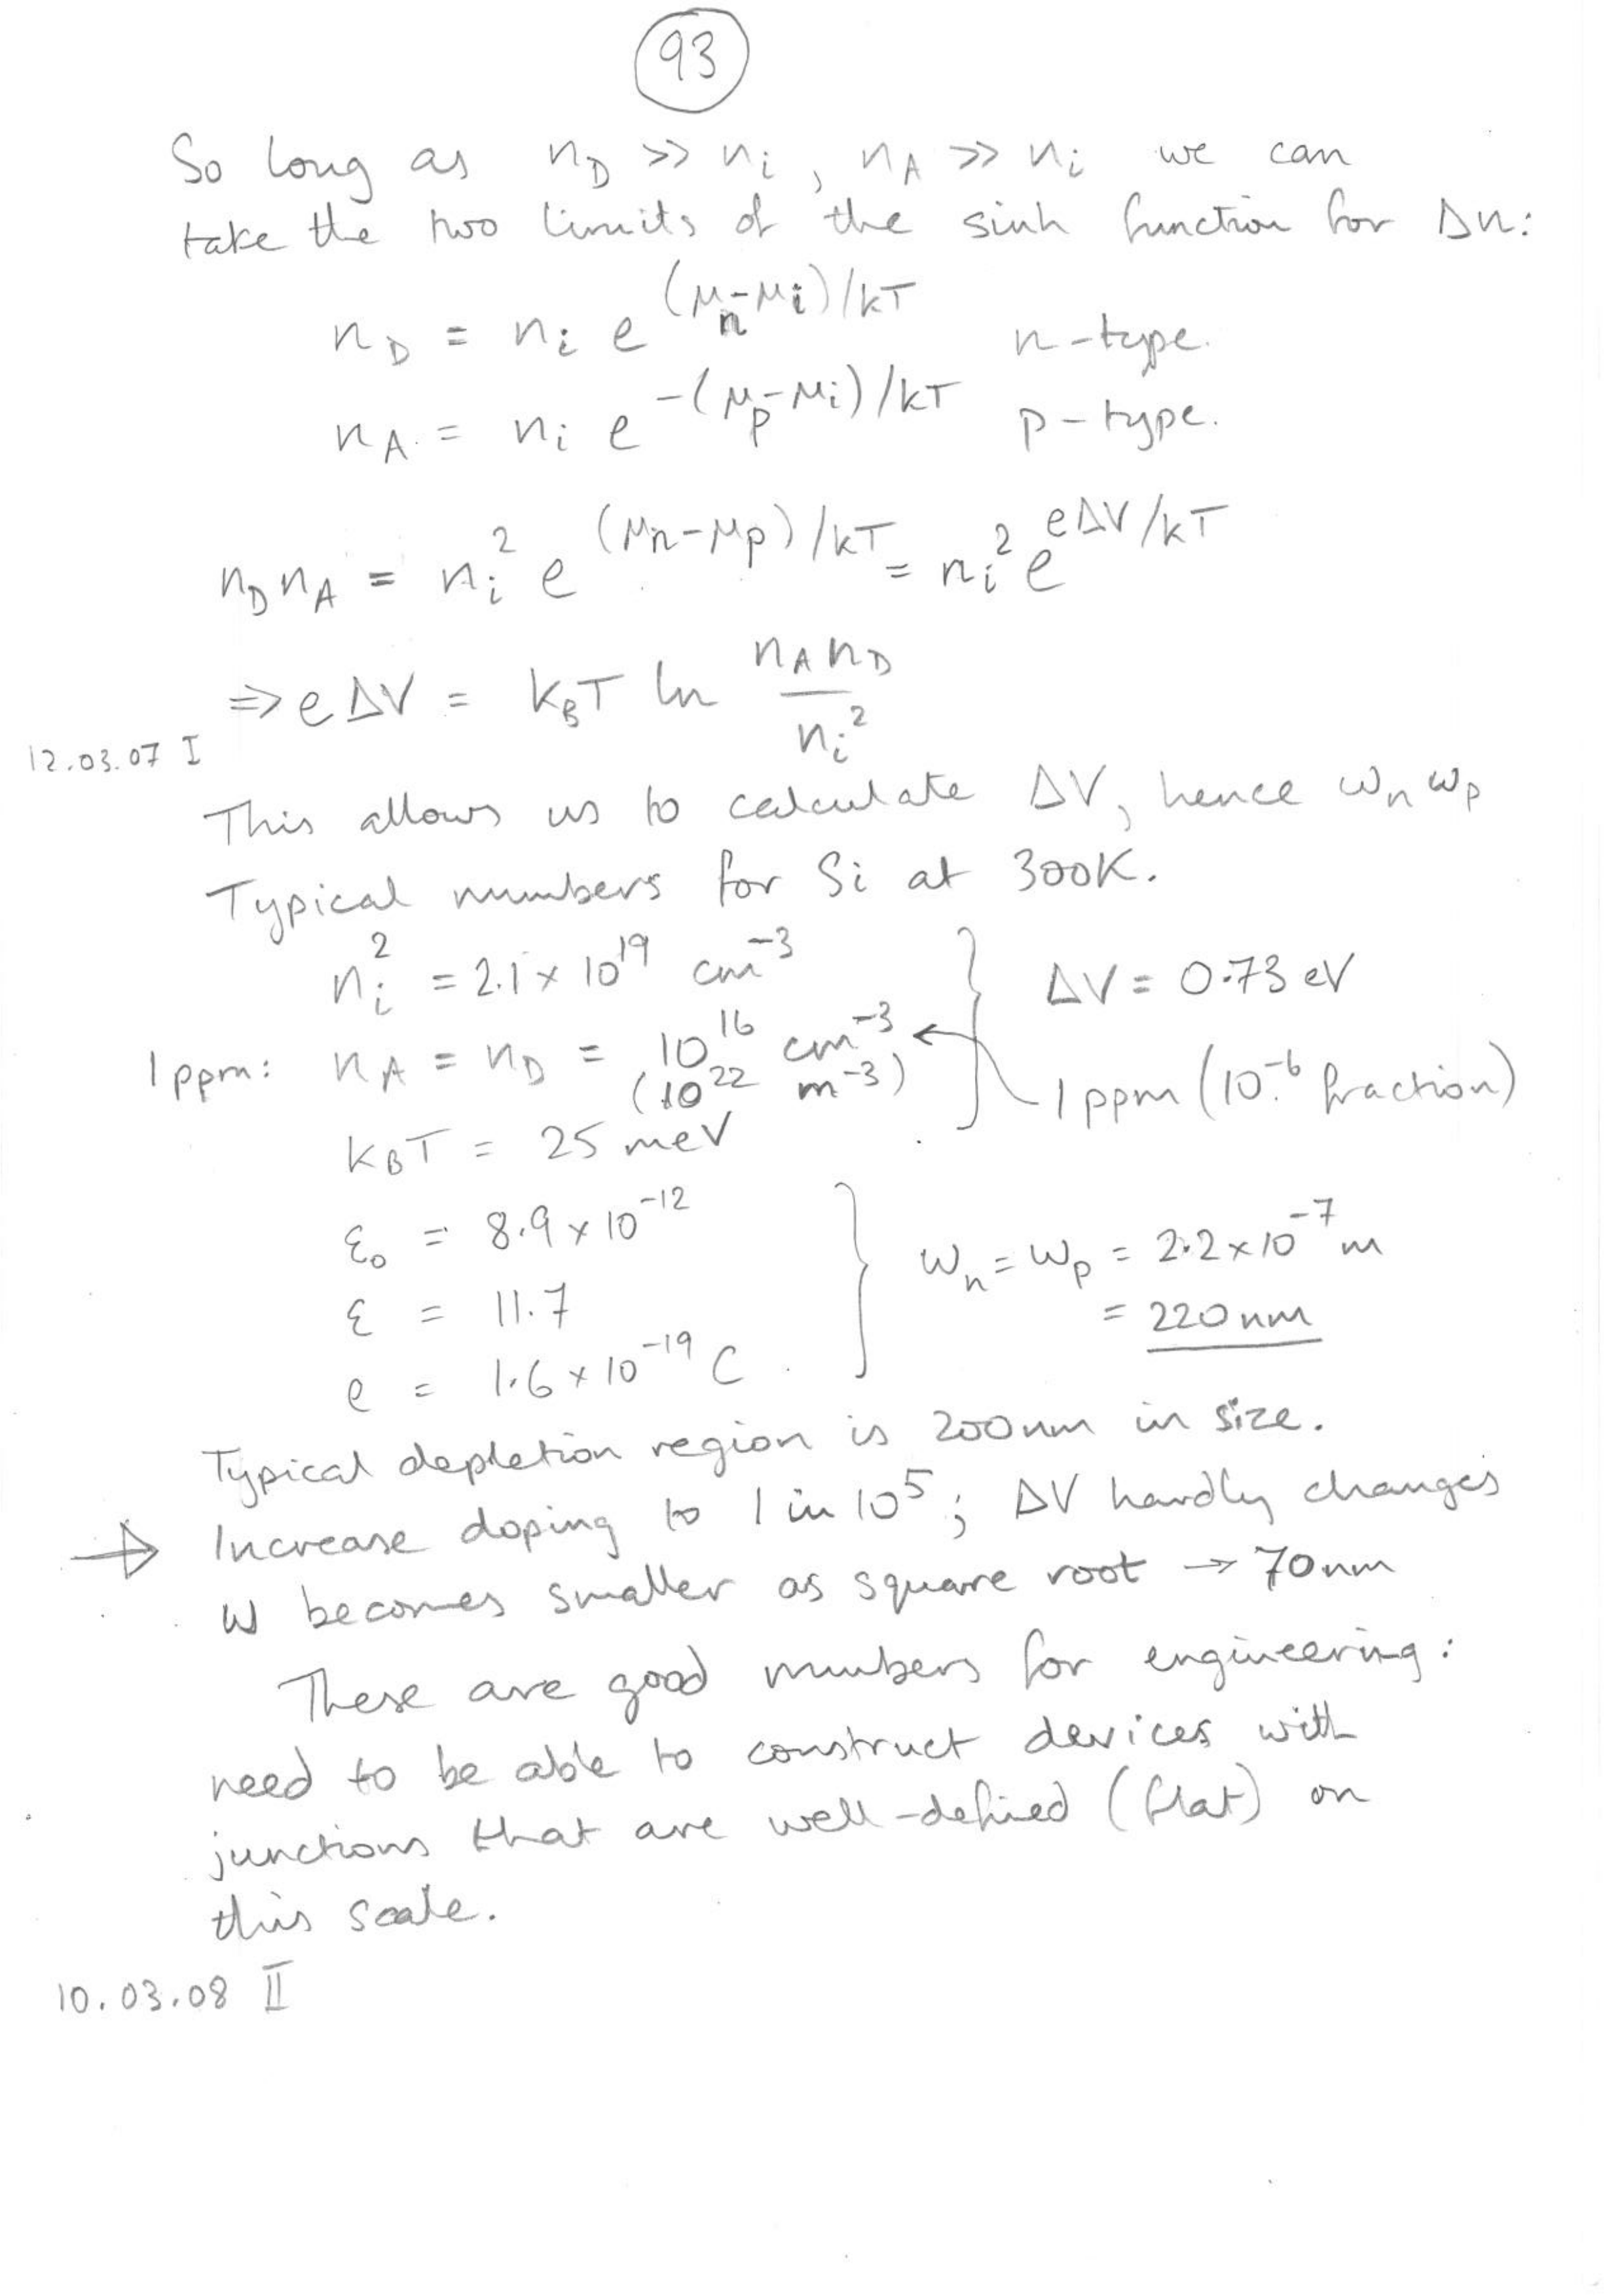 93
So long as n_D >> n_i, n_A >> n_i we can
take the two limits of the sinh function for Δn:
n_D = n_i e^{(μ_n-μ_i)/kT} n-type.
n_A = n_i e^{-(μ_p-μ_i)/kT} p-type.
n_D n_A = n_i^2 e^{(μ_n-μ_p)/kT} = n_i^2 e^{eΔV/kT}
⇒ eΔV = k_B T ln n_A n_D / n_i^2
12.03.07 I
This allows us to calculate ΔV, hence w_n w_p
Typical numbers for Si at 300K.
n_i^2 = 2.1 × 10^19 cm^-3
ΔV = 0.73 eV
1 ppm: n_A = n_D = 10^16 cm^-3 ←
(10^22 m^-3)
1 ppm (10^-6 fraction)
k_B T = 25 meV
ε_0 = 8.9 × 10^-12
w_n = w_p = 2.2 × 10^-7 m
ε = 11.7
= 220 nm
e = 1.6 × 10^-19 C
Typical depletion region is 200nm in size.
→ Increase doping to 1 in 10^5; ΔV hardly changes
W becomes smaller as square root → 70nm
These are good numbers for engineering:
need to be able to construct devices with
junctions that are well-defined (flat) on
this scale.
10.03.08 II